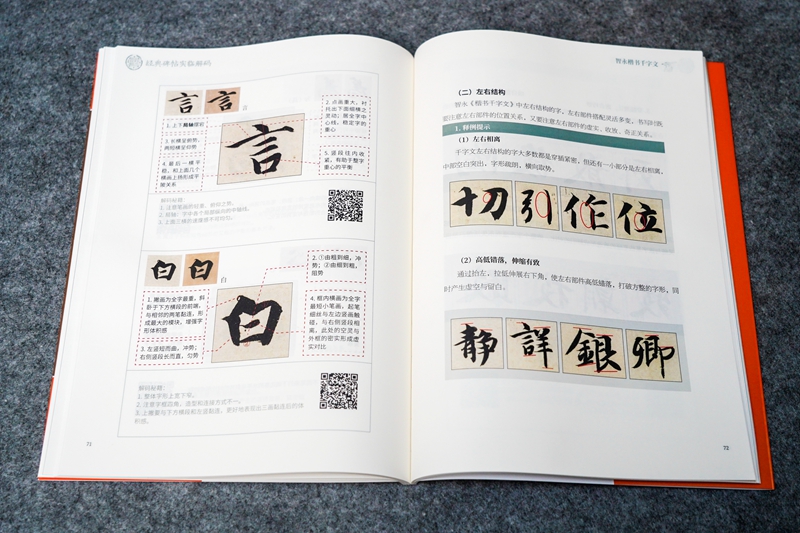 经典碑帖实临解码
言 言
言
1. 上下局轴错位
3. 长横呈俯势,
两短横呈仰势
4. 最后一横平
稳,和上面几个
横画上扬形成平
衡关系
言
2. 点画重大,衬
托出下面细横之
灵动;居全字中
心线,稳定字的
重心
5. 竖段往内收
紧,有助于整字
重心的平衡
解码秘籍:
1. 注意笔画的轻重、俯仰之势。
白 白
白
1. 撇画为全字最重,斜
卧于下方横段的前端,
与相邻的两笔黏连,形
成最大的模块,增强字
形体积感
3. 左竖短而曲,冲势;
右侧竖段长而直,匀势
白
2. ①由粗到细,冲
势;②由细到粗,
阻势
4. 框内横画为全字
最短小笔画。起笔
细丝与左边竖画触
碰,与右侧竖段相
离,此处的空灵与
外框的密实形成虚
实对比
解码秘籍:
1. 整体字形上宽下窄。
2. 注意字框四角,造型和连接方式不一。
3. 上撇要与于下方横段和左竖黏连,更好地表现出三画黏连后的体
积感。
71
智永楷书千字文
(二)左右结构
智永《楷书千字文》中左右结构的字,左右部件搭配灵活多变,书写时既
要注意左右部件的位置关系,又要注意左右部件的虚实、收放、奇正关系。
1. 释例提示
(1)左右相离
千字文左右结构的字大多数都是穿插紧密,但还有一小部分是左右相离,
中部空白突出,字形疏朗,横向取势。
切 引 作 位
(2)高低错落,伸缩有致
通过抬左、拉低伸展右下角,使左右部件高低错落,打破方整的字形,同
时产生虚空与留白。
静 詳 銀 卿
72